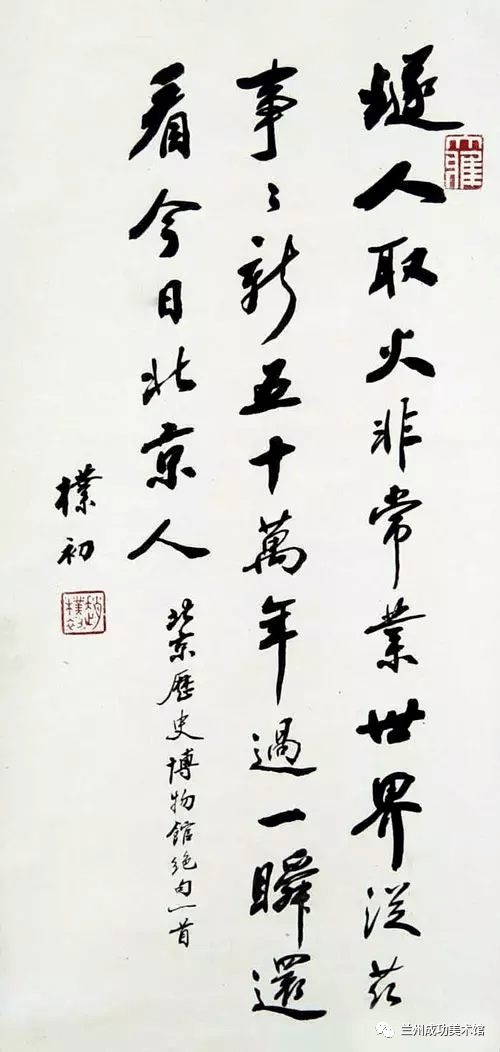 燧人取火非常業世界從兹
事〻新五十萬年過一瞬還
看今日北京人
北京歷史博物館絶句一首
樸初
趙樸初
兰州成功美术馆